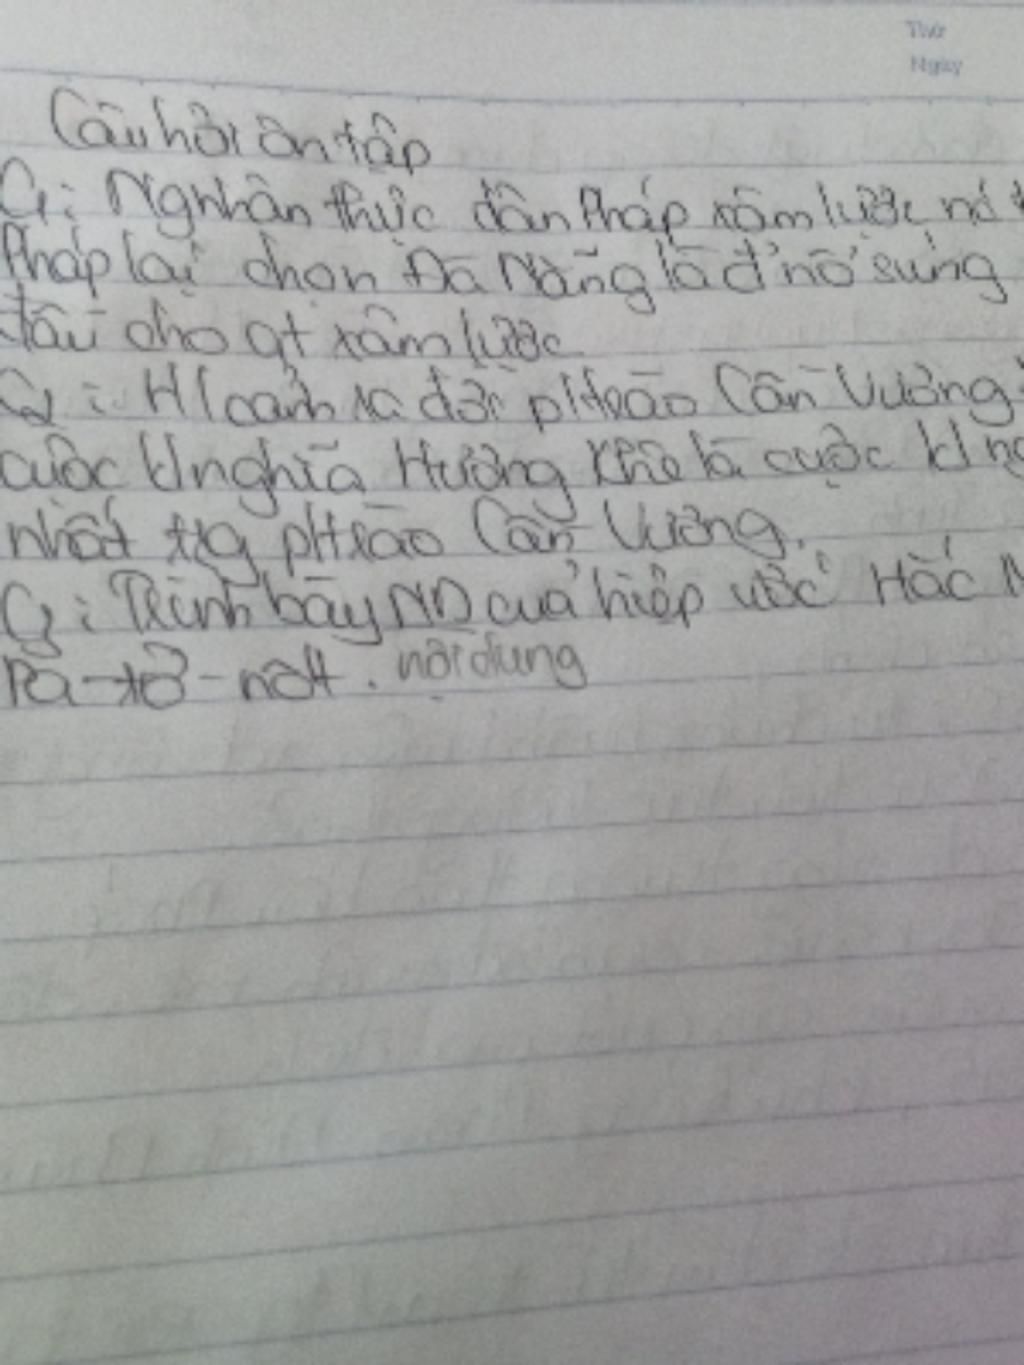 Thứ
Ngày
Câu hỏi ôn tập
C1: Ngnhân thực dân Pháp xâm lược nó
Pháp lại chọn Đà Nẵng là đ' nổ súng
đầu cho qt xâm lược
C2: H/cảnh ra đời pHtrào Cần Vương
cuộc k/nghĩa Hương Khê là cuộc k/ng
nhất trg pHtrào Cần Vương.
C3: Trình bày ND của hiệp ước Hác M
Pa-tơ-nốt. nội dung